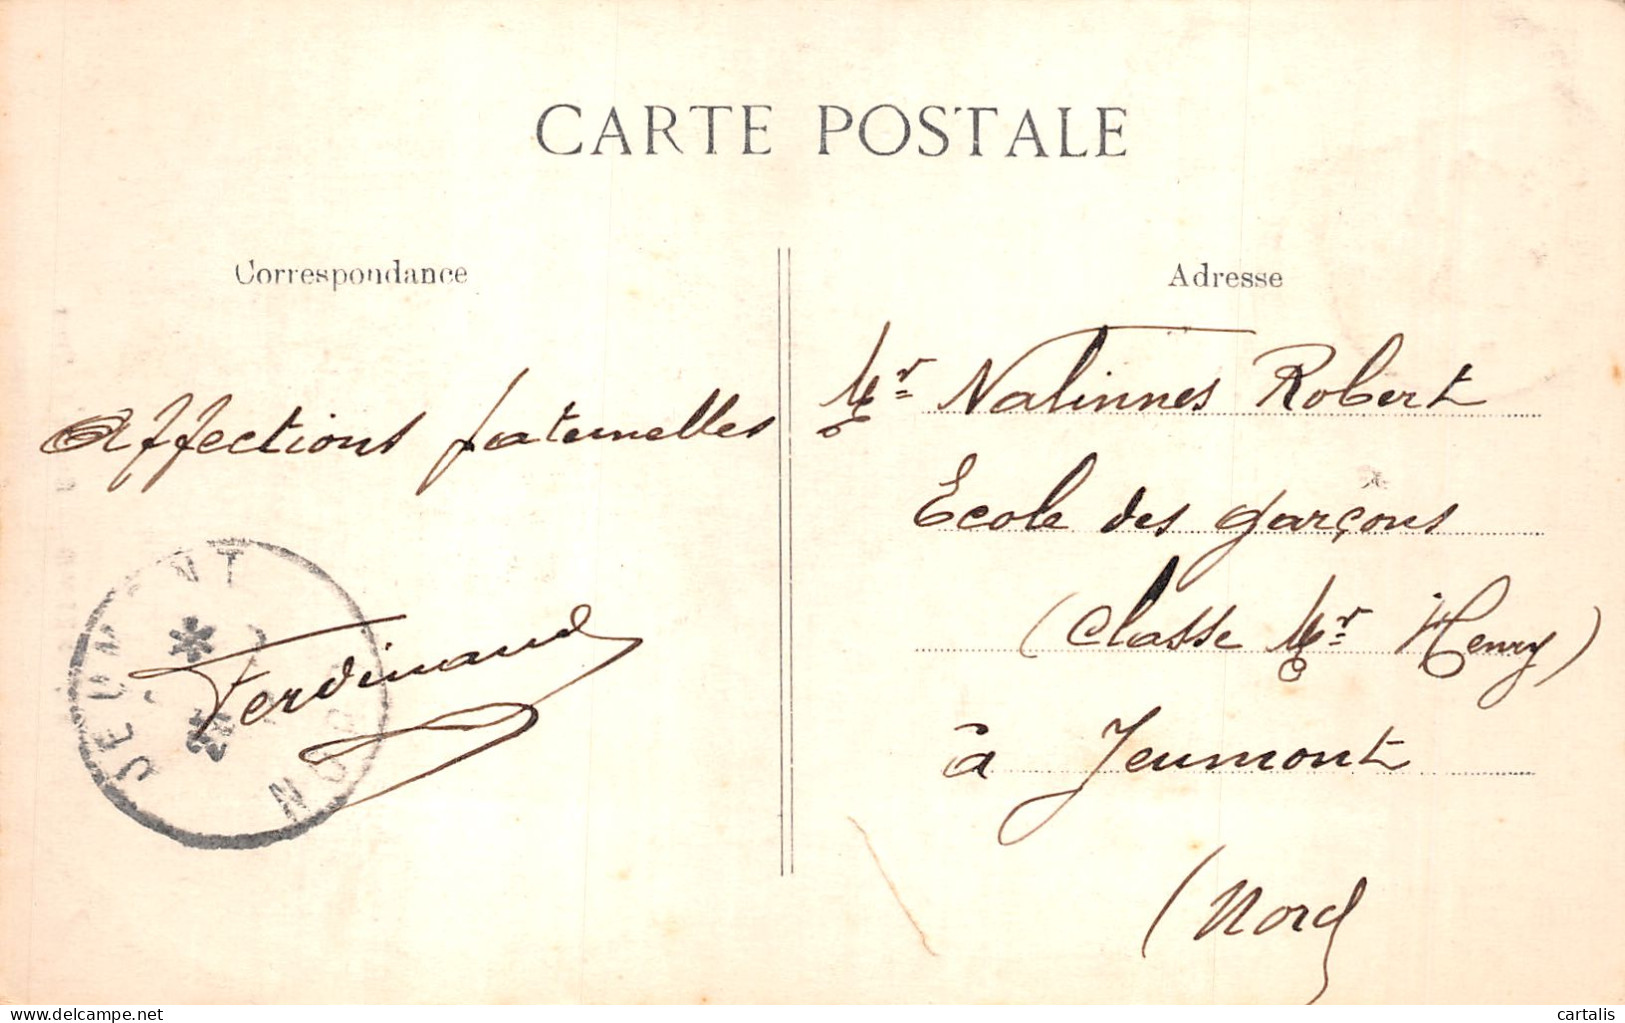 CARTE POSTALE
Correspondance
Affections fraternelles
Ferdinand
JEUMONT
NORD
Adresse
Mr Nalinnes Robert
Ecole des garçons
(Classe Mr Henry)
à Jeumont
(Nord
cartalis
delcampe.net